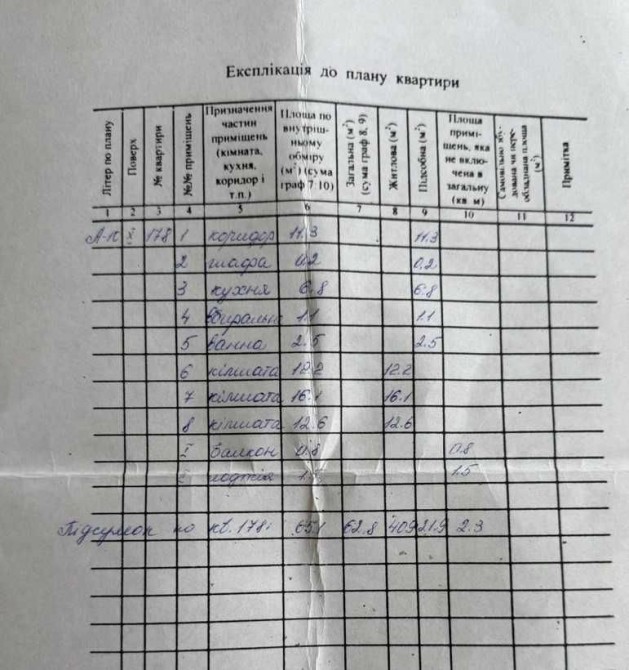 Експлікація до плану квартири
Літер по плану | Поверх | № квартири | №№ приміщень | Призначення частин приміщень (кімната, кухня, коридор і т.п.) | Площа по внутріш-ньому обміру (м²) (сума граф 7 10) | Загальна (м²) (сума граф 8, 9) | Житлова (м²) | Підсобна (м²) | Площа примі-щень, яка не вклю-чена в загальну (кв м) | Самовільно збу-дована чи пере-обладнана площа (м²) | Примітка
1 2 3 4 5 6 7 8 9 10 11 12
А-п X 178 1 коридор 11.3 11.3
2 шафа 0.2 0.2
3 кухня 6.8 6.8
4 вбиральня 1.1 1.1
5 ванна 2.5 2.5
6 кімната 12.2 12.2
7 кімната 16.1 16.1
8 кімната 12.6 12.6
I балкон 0.8 0.8
лоджія 1.5
Підсумок по кв. 178: 65.1 62.8 40.9 21.9 2.3